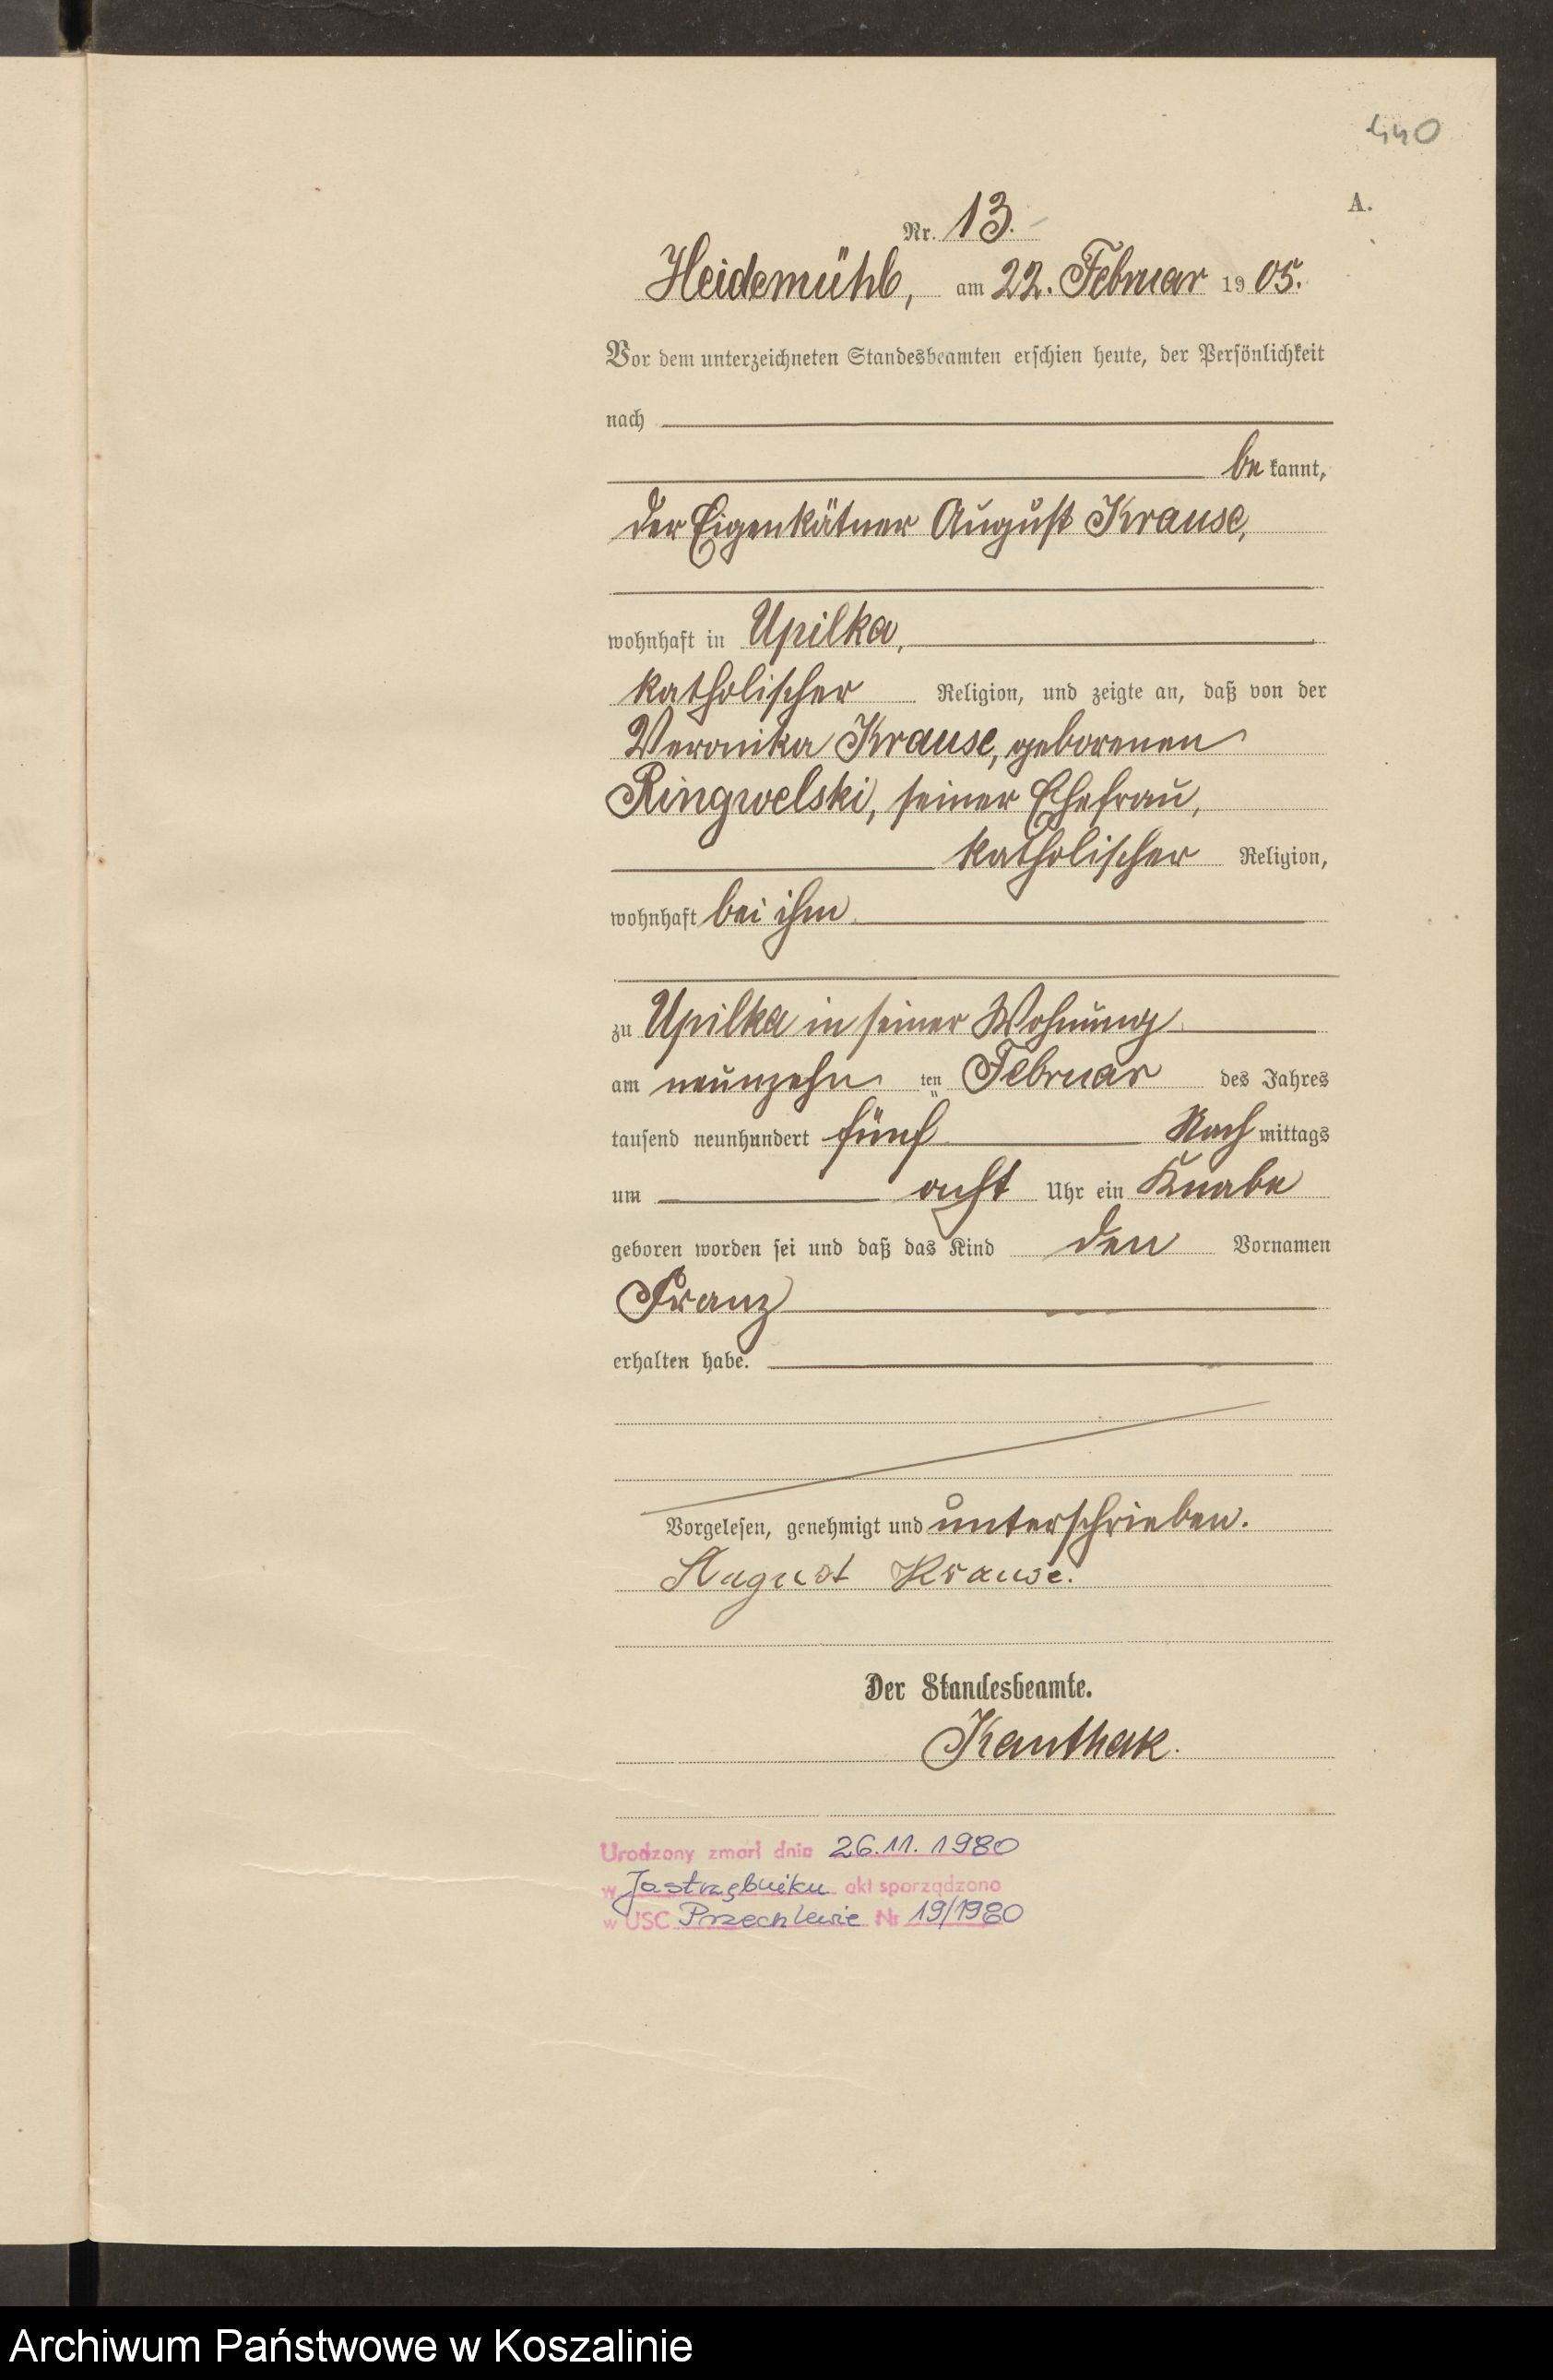 440
A.
Nr. 13.
Heidemühl, am 22. Februar 1905.
Vor dem unterzeichneten Standesbeamten erschien heute, der Persönlichkeit
nach
be kannt,
der Eigenkätner August Krause,
wohnhaft in Upilka,
katholischer Religion, und zeigte an, daß von der
Veronika Krause, geborenen
Ringwelski, seiner Ehefrau,
katholischer Religion,
wohnhaft bei ihm
zu Upilka in seiner Wohnung
am neunzehn ten Februar des Jahres
tausend neunhundert fünf Nach mittags
um acht Uhr ein Knabe
geboren worden sei und daß das Kind den Vornamen
Franz
erhalten habe.
Vorgelesen, genehmigt und unterschrieben.
August Krause.
Der Standesbeamte.
Kanthak.
Urodzony zmarł dnia 26.11.1980
w Jastrzębniku akt sporządzono
w USC Przechlewie Nr 19/1980
Archiwum Państwowe w Koszalinie